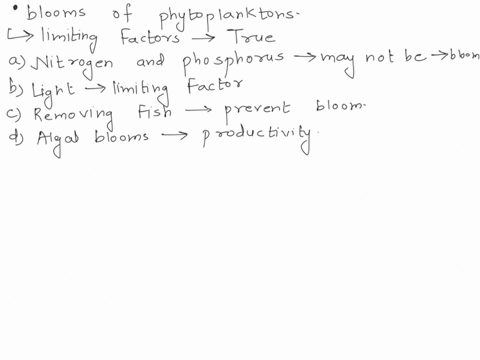 • blooms of phytoplanktons.
↳ limiting factors → True
a) Nitrogen and phosphorus → may not be → bloom
b) Light → limiting factor
c) Removing fish → prevent bloom.
d) Algal blooms → productivity.